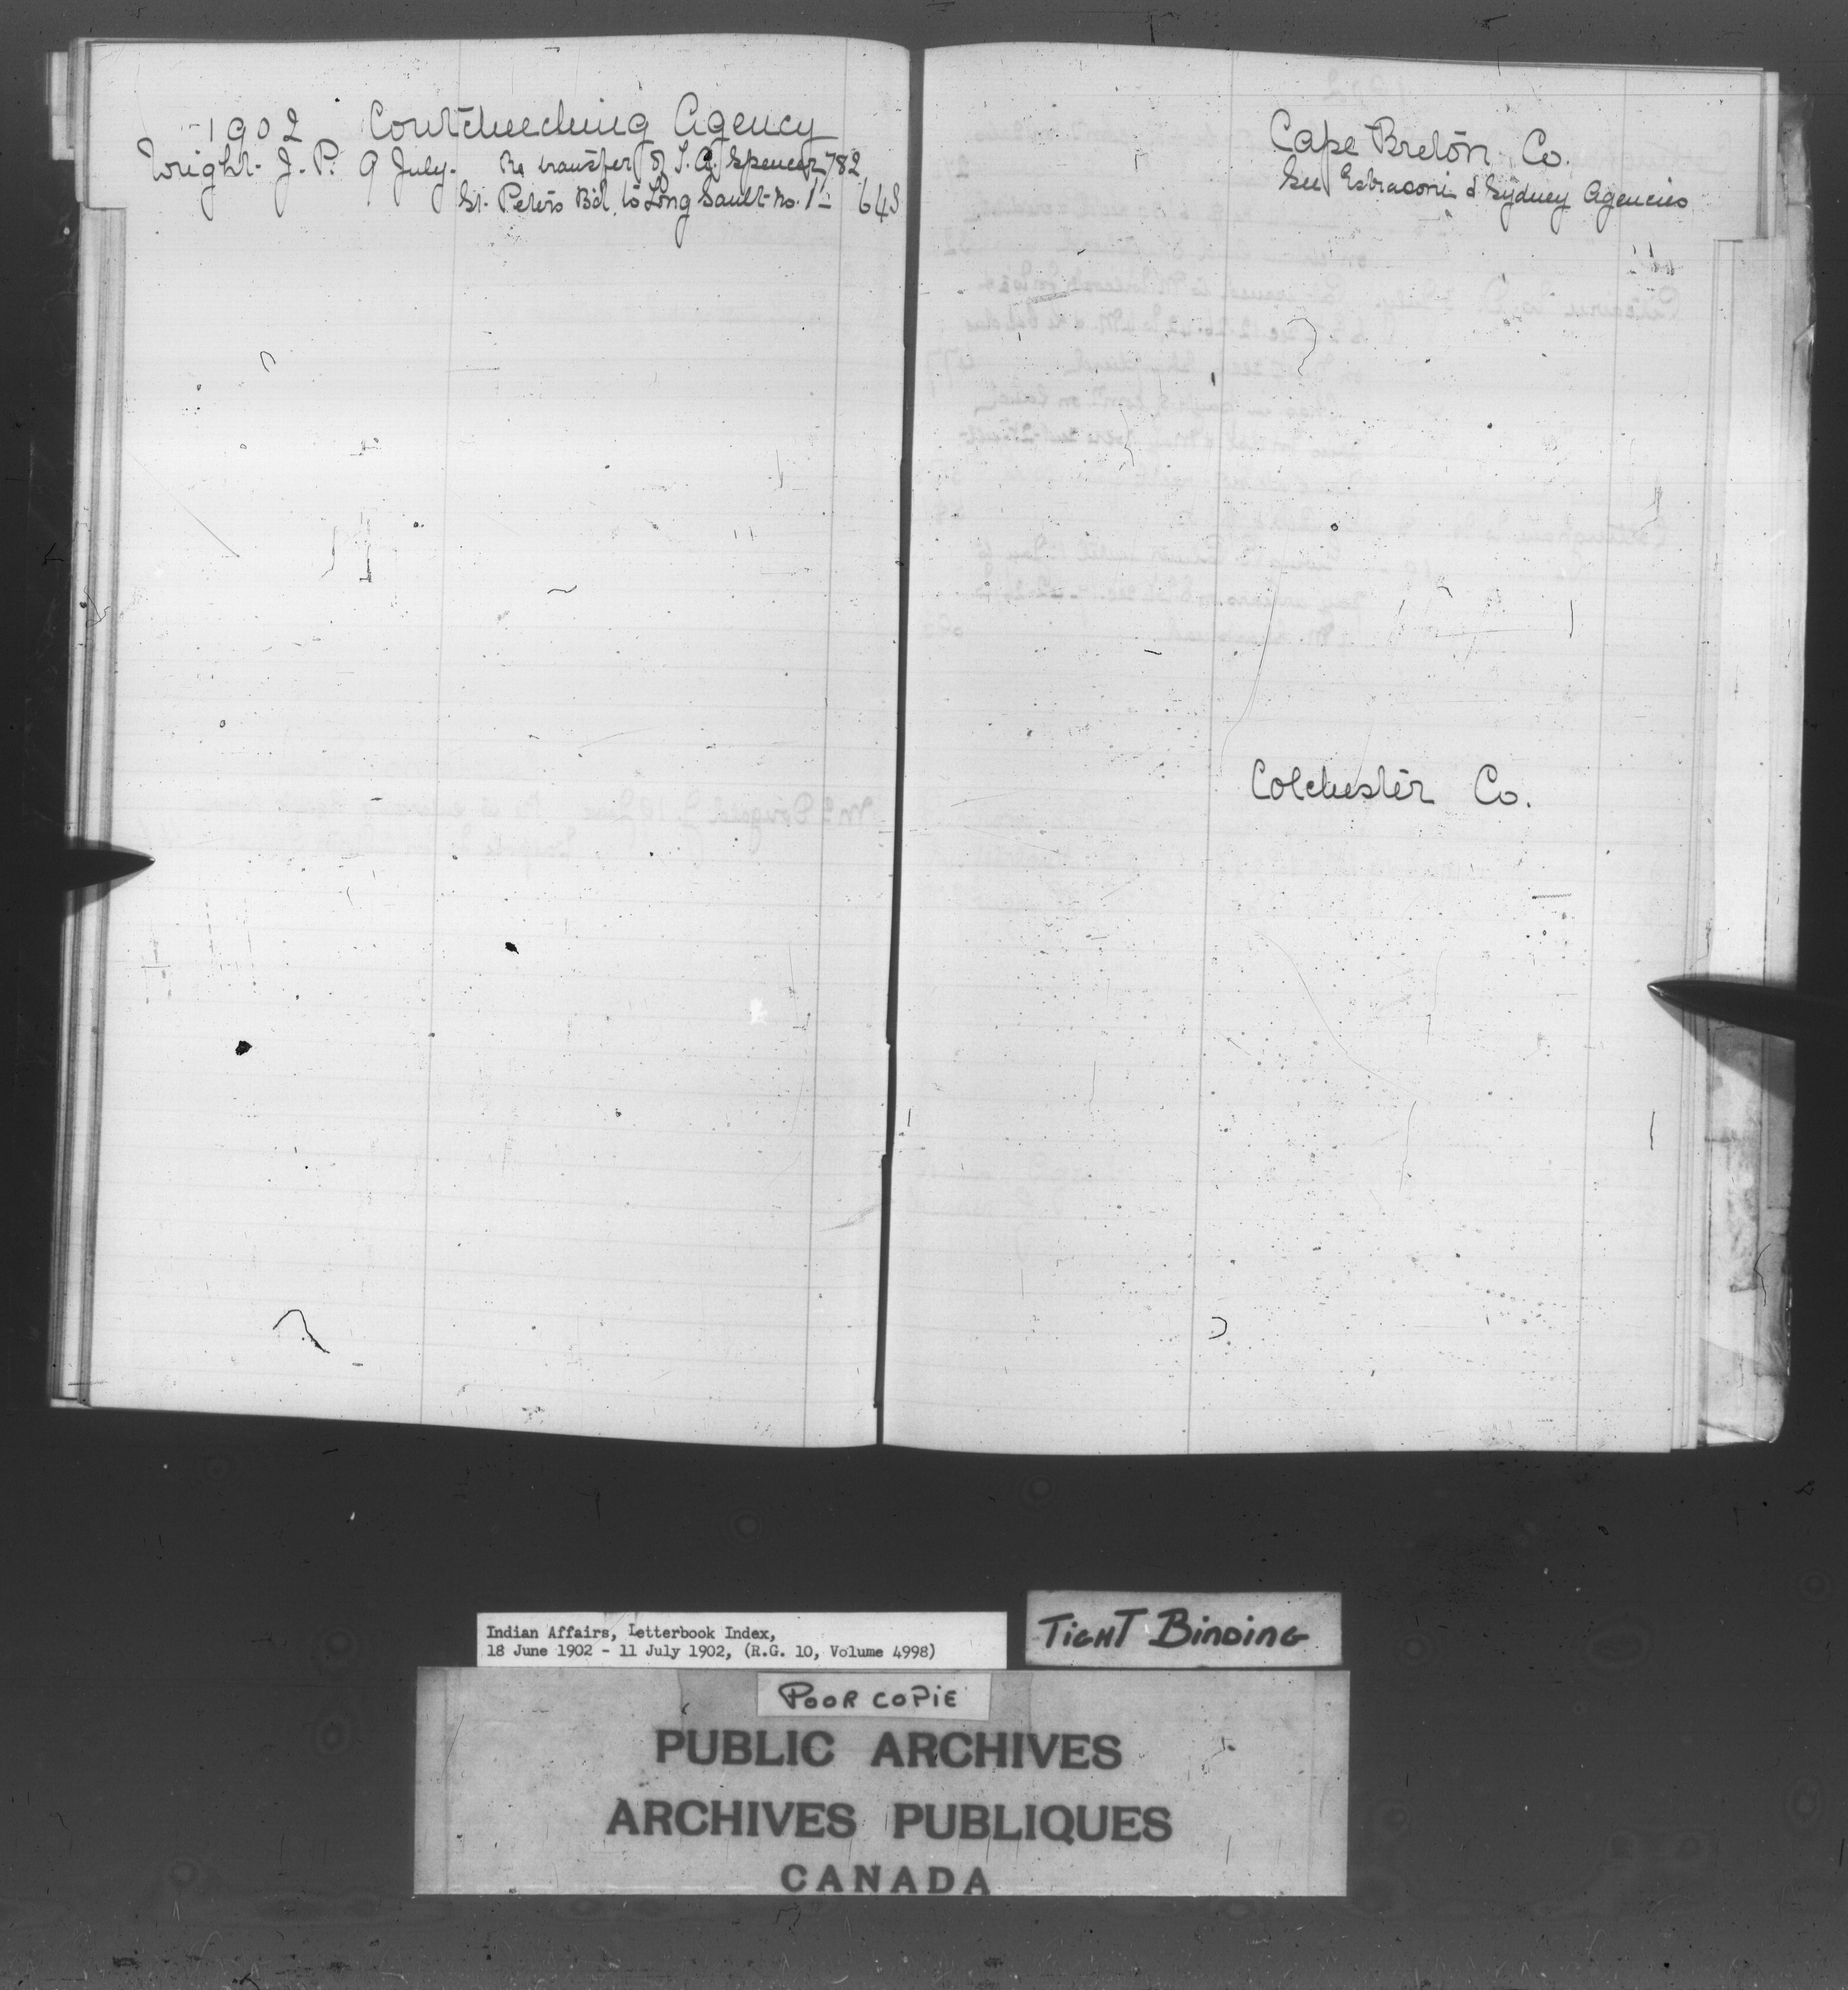 1902 Coutcheeching Agency
Wright J. P. 9 July. Re transfer of T. G. Spencer, 782
St. Peter's Bd. to Long Sault No. 1 – 643
Cape Breton Co.
See Eskasoni & Sydney Agencies
Colchester Co.
Indian Affairs, Letterbook Index,
18 June 1902 - 11 July 1902, (R.G. 10, Volume 4998)
TIGHT BINDING
POOR COPIE
PUBLIC ARCHIVES
ARCHIVES PUBLIQUES
CANADA